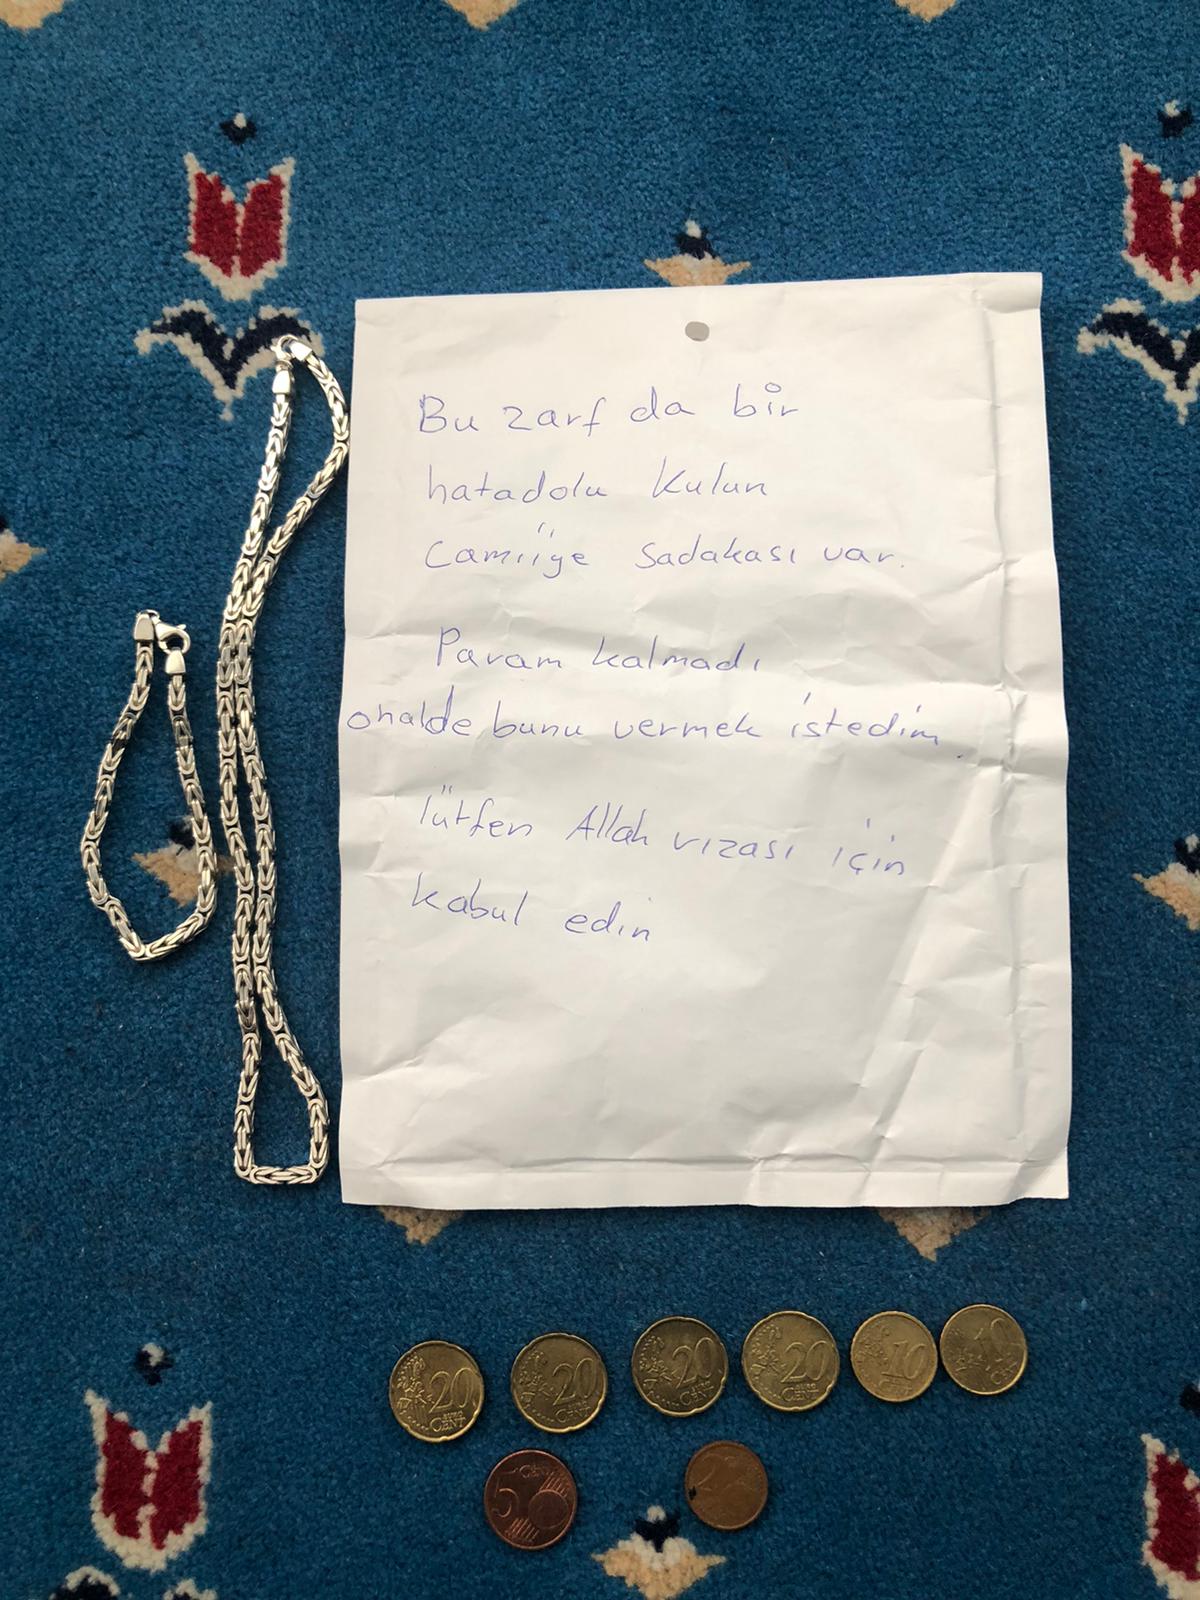 Bu zarf da bir
hatadolu kulun
Camiiye Sadakası var.
Param kalmadı
ohalde bunu vermek istedim.
lütfen Allah rızası için
kabul edin
20 EURO CENT
20 EURO CENT
20 EURO CENT
20 EURO CENT
10 CENT
10 CENT
5
2